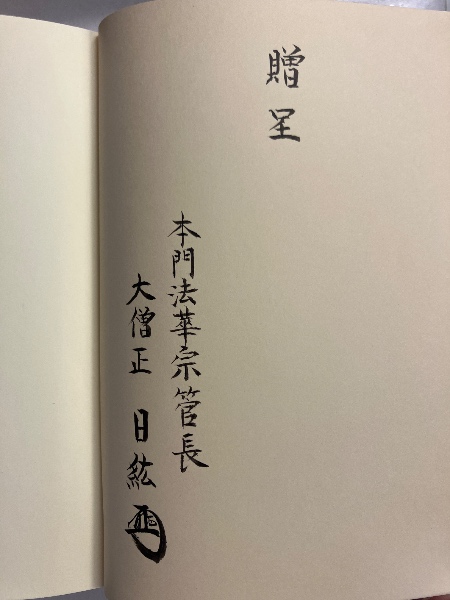 贈呈
本門法華宗管長
大僧正 日紘